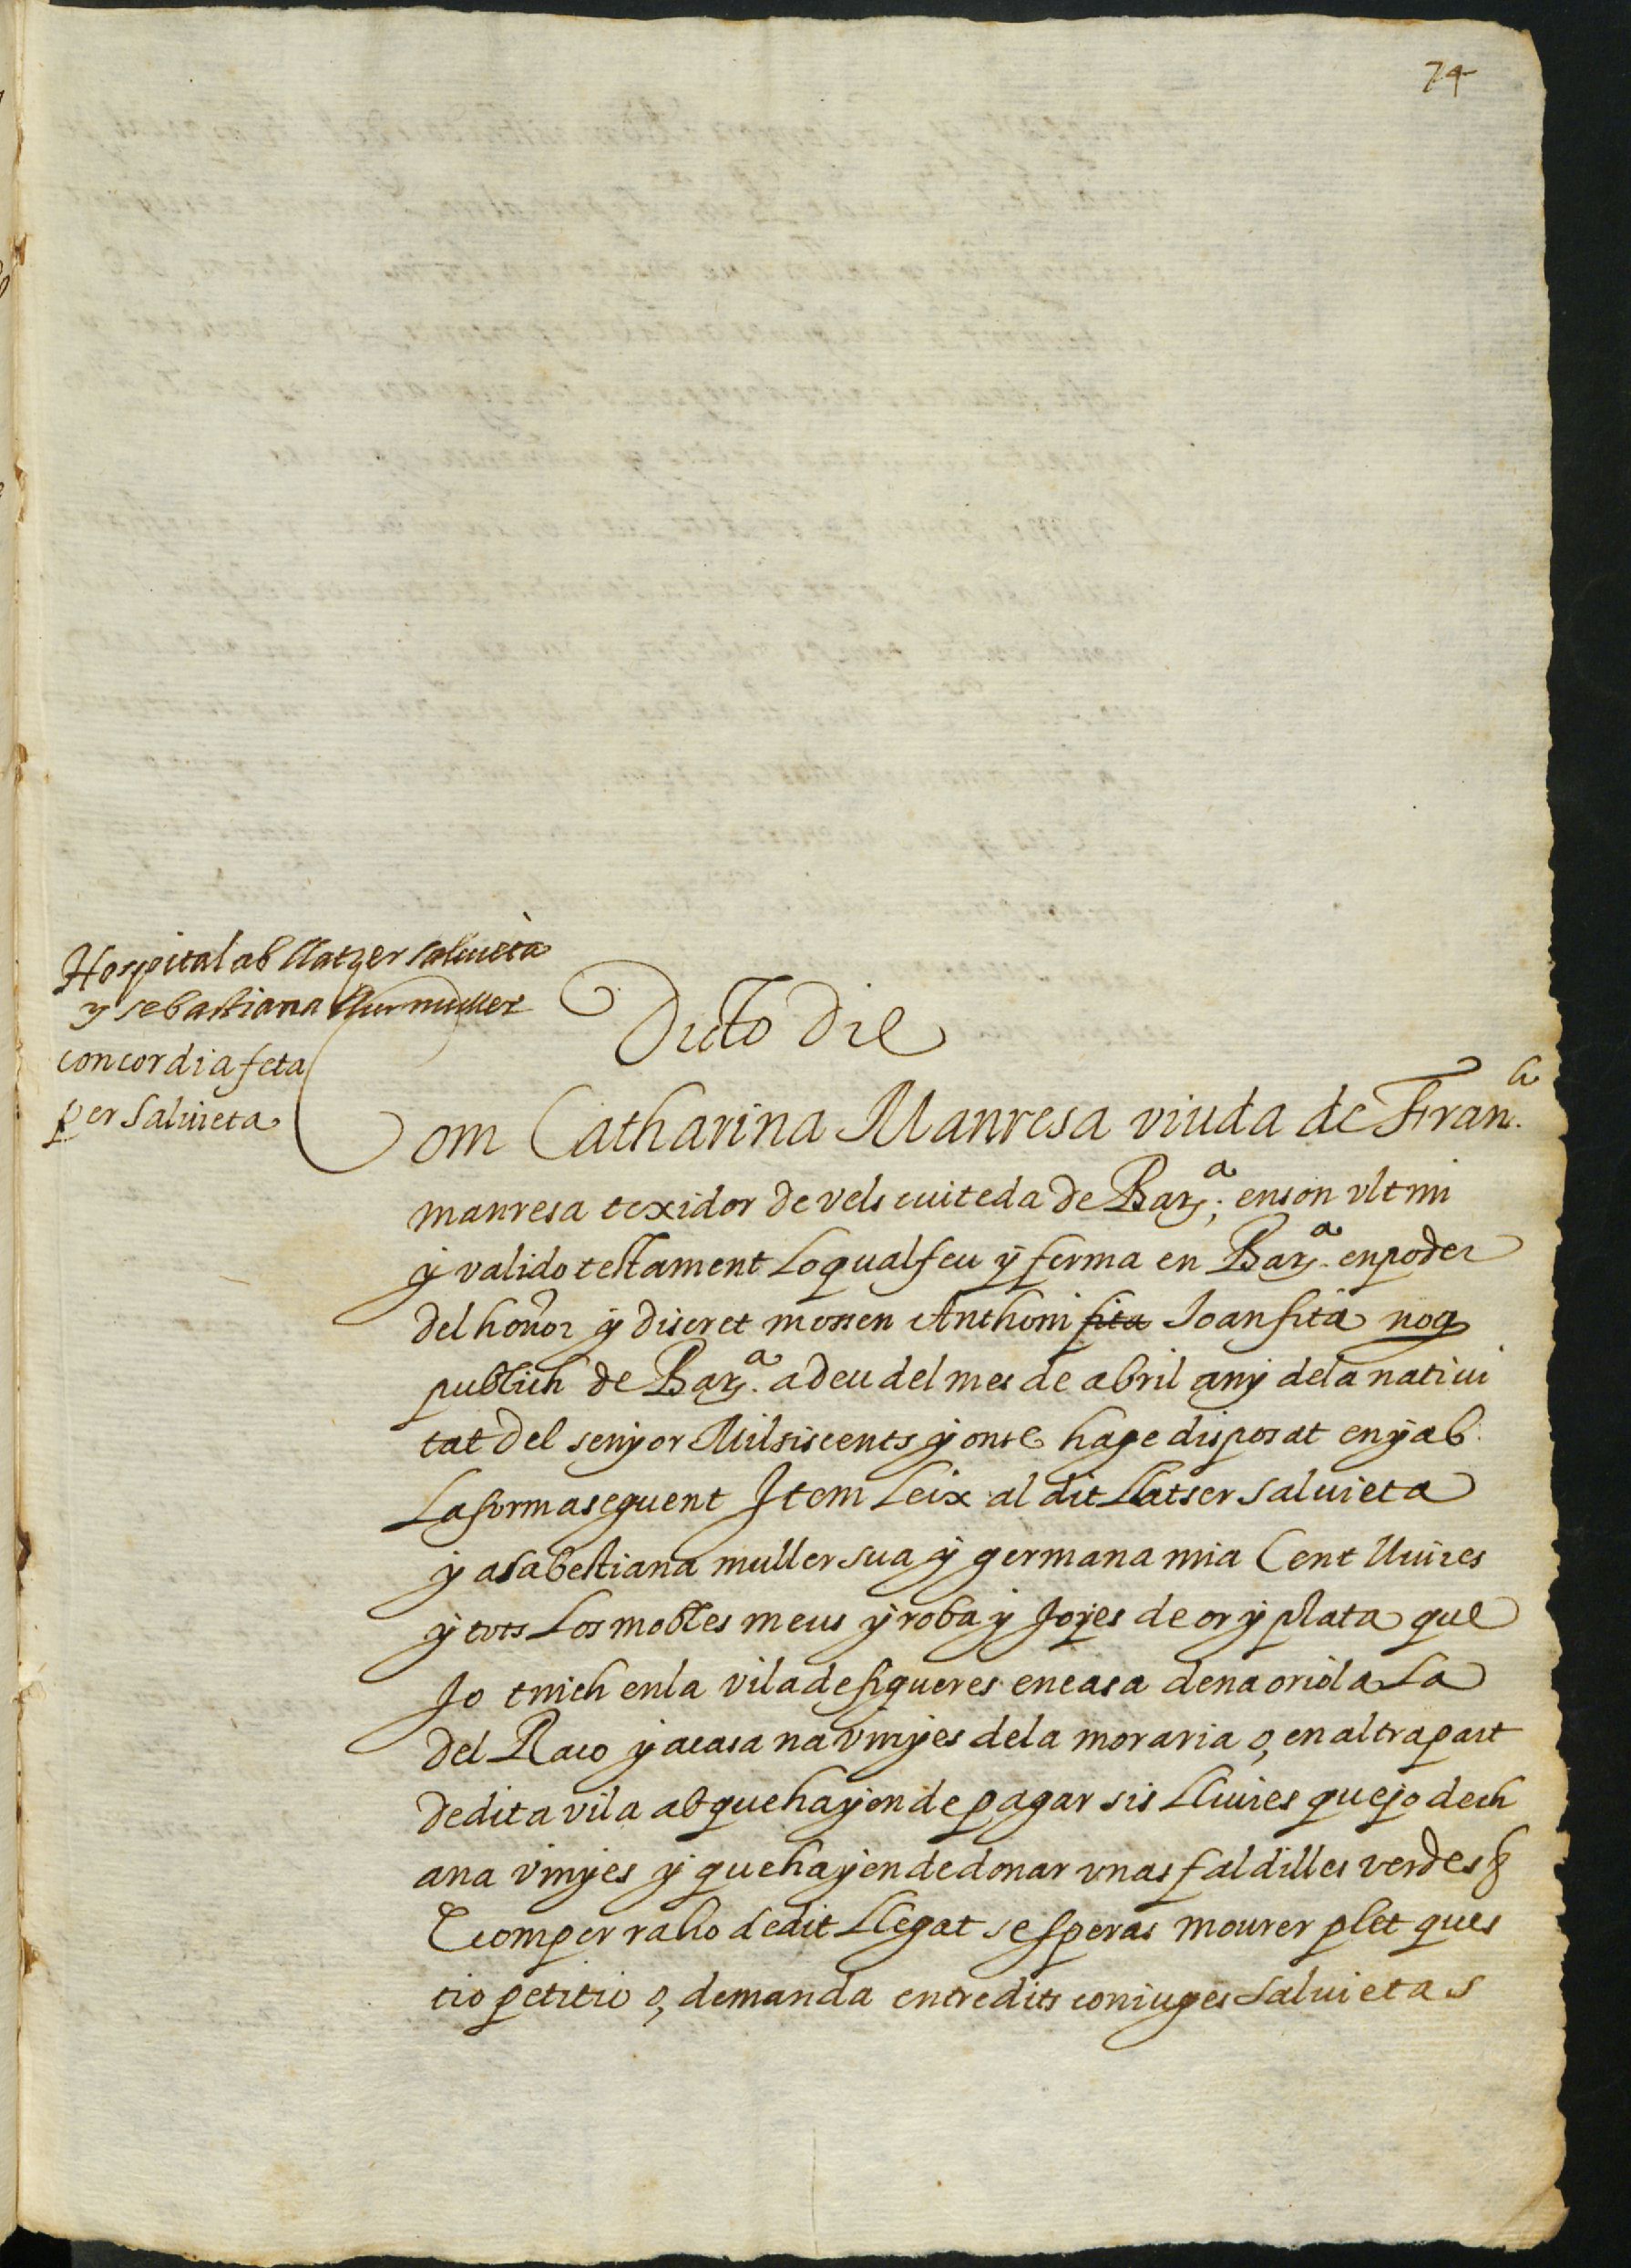 74
Hospital ab llatzer saluieta
y sebastiana sur muller
concordia feta
per Saluieta
Dicto die
Com Catharina Manresa viuda de Fran.ch
manresa texidor de vels ciuteda de Bar.a; en son vltim
ÿ valido testament Lo qual feu ÿ ferma en Bar.a en poder
del honor ÿ discret mossen Anthoni fita Joan fita not
publich de Bar.a a deu del mes de abril any dela natiui
tat del senyor Mil siscents ÿ onse hage disposat en ÿ ab
La forma seguent Item Leix al dit Llatser saluieta
ÿ a sabestiana muller sua ÿ germana mia Cent lliures
ÿ tots Los mobles meus ÿ roba ÿ Joyes de or ÿ plata que
Jo tinch en la vila de figueres en casa de na oriola La
del Raco ÿ a casa na vinyes dela moraria o, en altra part
de dita vila ab que hajen de pagar sis Lliures que jo dech
a na vinyes ÿ que hajen de donar vnas faldilles verdes &
E com per raho de dit Llegat se speras mourer plet ques
tio petitio o, demanda entre dits coniuges saluietas